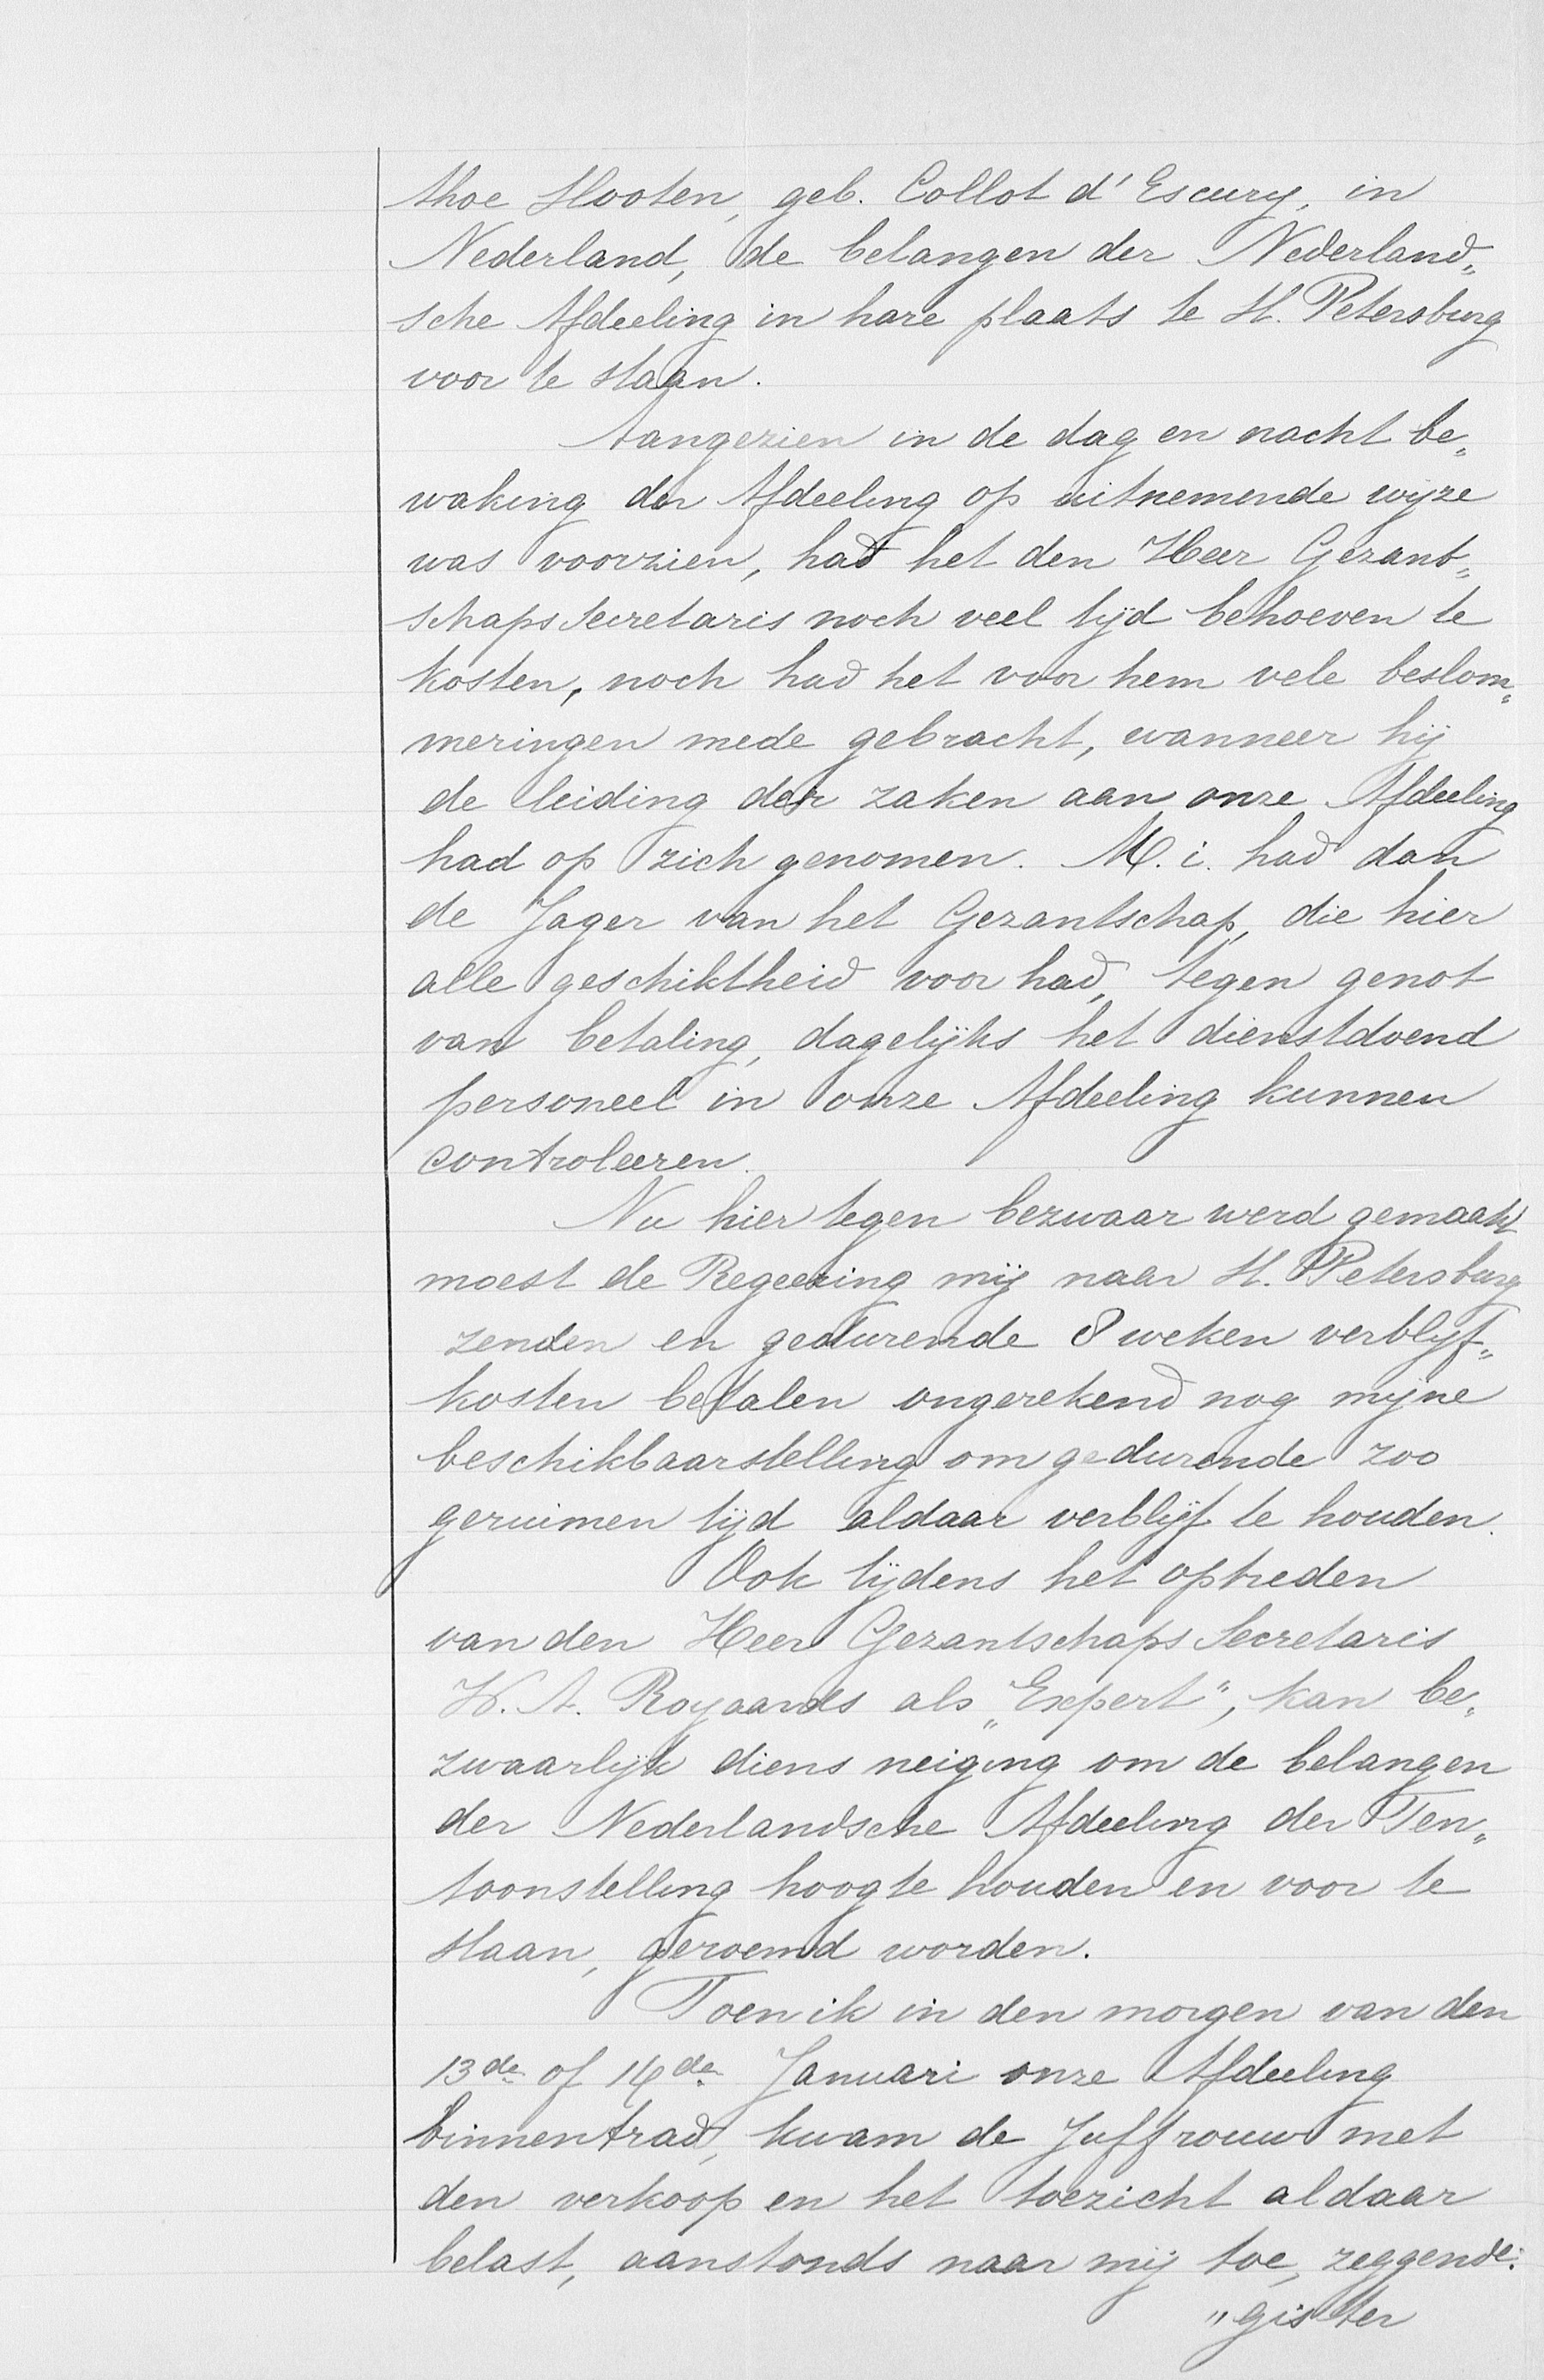 thoe Slooten, geb. Collot d'Escury, in
Nederland, de belangen der Nederland„
sche Afdeeling in hare plaats te St. Petersburg
voor te staan.
Aangezien in de dag en nacht be„
waking der Afdeeling op uitnemende wijze
was voorzien, had het den Heer Gezant„
schaps Secretaris noch veel tijd behoeven te
kosten, noch had het voor hem vele beslom„
meringen mede gebracht, wanneer hij
de leiding der zaken aan onze Afdeeling
had op zich genomen. M. i. had dan
de Jager van het Gezantschap, die hier
alle geschiktheid voor had, tegen genot
van betaling, dagelijks het dienstdoend
personeel in onze Afdeeling kunnen
controleeren.
Nu hier tegen bezwaar werd gemaakt
moest de Regeering mij naar St. Petersburg
zenden en gedurende 8 weken verblijf„
kosten betalen ongerekend nog mijne
beschikbaarstelling om gedurende zoo
geruimen tijd aldaar verblijf te houden.
Ook tijdens het optreden
van den Heer Gezantschaps Secretaris
W. A. Royaards als „Expert", kan be„
zwaarlijk diens neiging om de belangen
der Nederlandsche Afdeeling der Ten„
toonstelling hoog te houden en voor te
staan, geroemd worden.
Toen ik in den morgen van den
13de of 14de Januari onze Afdeeling
binnentrad, kwam de Juffrouw met
den verkoop en het toezicht aldaar
belast, aanstonds naar mij toe, zeggende:
"gister